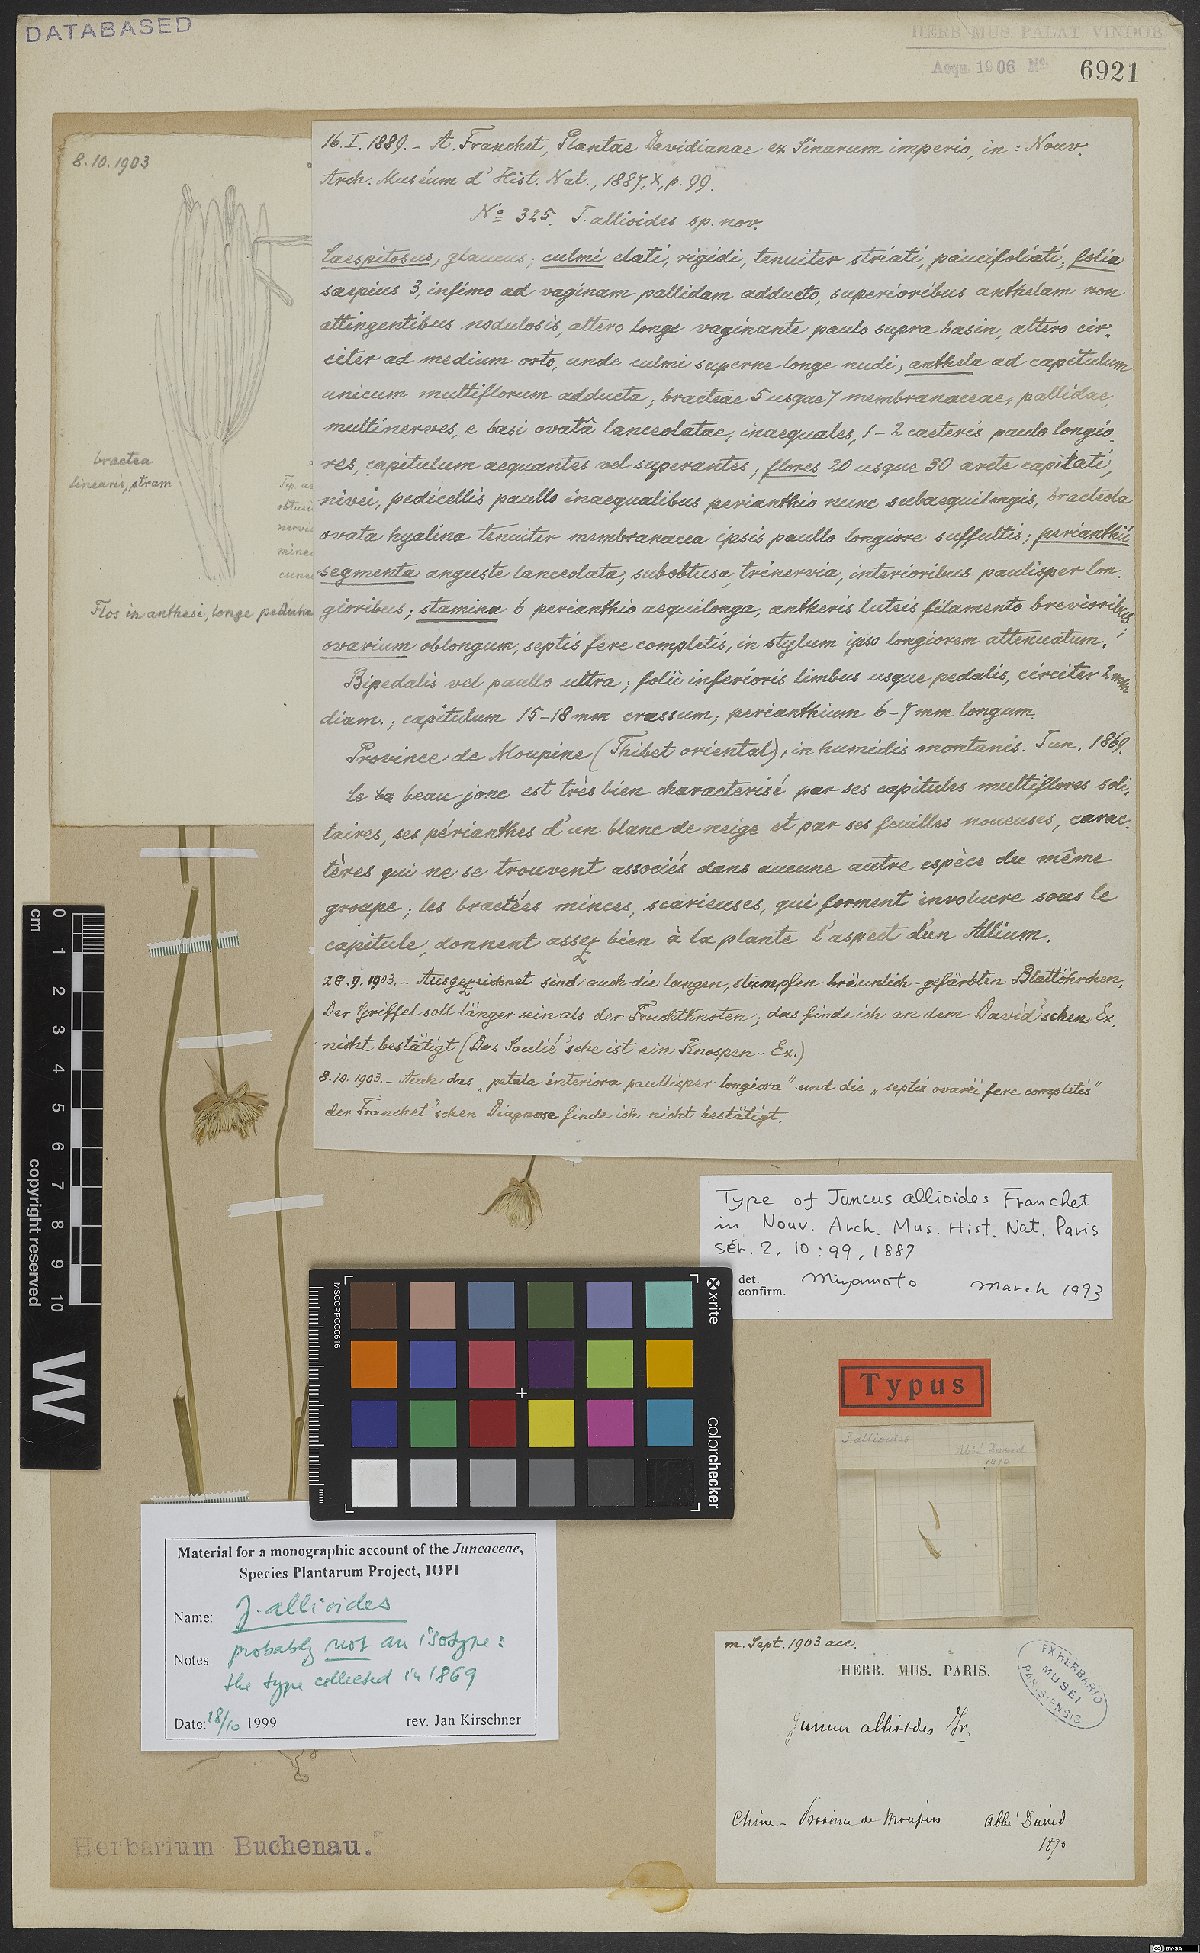 DATABASED
HERB. MUS. PALAT. VINDOB.
Acqu. 1906 No. 6921
8.10.1903
bractea
linearis, stram
Flos in anthesi, longe
obtus
nervis
16. I. 1889. - A. Franchet, Plantae Davidianae ex Sinarum imperio, in: Nouv.
Arch. Muséum d'Hist. Nat., 1887, X, p. 99.
No 325. J. allioides sp. nov.
Caespitosus, glaucus; culmi elati, rigidi, tenuiter striati, paucifoliati, folia
saepius 3, infimo ad vaginam pallidam adducto, superioribus anthelam non
attingentibus nodulosis, altero longe vaginante paulo supra basin, altero cir-
citer ad medium orto, unde culmi superne longe nudi; anthela ad capitulum
unicum multiflorum adducta; bracteae 5 usque 7 membranaceae, pallidae,
multinerves, e basi ovatâ lanceolatae, inaequales, 1-2 caeteris paulo longio-
res, capitulum aequantes vel superantes; flores 20 usque 30 arcte capitati,
nivei, pedicellis paullo inaequalibus perianthio nunc subaequilongis, bracteola
ovata hyalina tenuiter membranacea ipsis paullo longiore suffultis; perianthii
segmenta anguste lanceolata, subobtusa trinervia, interioribus paulisper lon-
gioribus; stamina 6 perianthio aequilonga, antheris luteis filamento brevioribus;
ovarium oblongum, septis fere completis, in stylum ipso longiorem attenuatum.
Bipedalis vel paullo ultra; folii inferioris limbus usque pedalis, circiter 2 mm
diam.; capitulum 15-18 mm crassum; perianthium 6-7 mm longum.
Province de Moupine (Thibet oriental), in humidis montanis. Jun. 1869.
Ce beau jonc est très bien characterisé par ses capitules multiflores soli-
taires, ses périanthes d'un blanc de neige et par ses feuilles noueuses, carac-
tères qui ne se trouvent associés dans aucune autre espèce du même
groupe; les bractées minces, scarieuses, qui forment involucre sous le
capitule, donnent assez bien à la plante l'aspect d'un Allium.
28.9.1903. - Ausgezeichnet sind auch die langen, stumpfen bräunlich-gefärbten Blattöhrchen.
Der Griffel soll länger sein als der Fruchtknoten; das finde ich an dem David'schen Ex.
nicht bestätigt (Das Soulié'sche ist ein Knospen-Ex.)
8.10.1903. - Auch das „petala interiora paullisper longiora" und die „septis ovarii fere completis"
der Franchet'schen Diagnose finde ich nicht bestätigt.
Type of Juncus allioides Franchet
in Nouv. Arch. Mus. Hist. Nat. Paris
sér. 2. 10: 99, 1887
det.
confirm. Miyamoto March 1993
Typus
J. allioides
Abbé David
1870
cm
0 1 2 3 4 5 6 7 8 9 10
copyright reserved
W
MSCCPPCCC616
x-rite
colorchecker
Material for a monographic account of the Juncaceae,
Species Plantarum Project, IOPI
Name: J. allioides
Notes probably not an isotype:
the type collected in 1869
Date: 18/10 1999 rev. Jan Kirschner
m. Sept. 1903 acc.
HERB. MUS. PARIS.
EX HERBARIO
MUSEI
PARISIENSIS
Juncus allioides Fr.
Chine - Province de Moupin Abbé David
1870
Herbarium Buchenau.